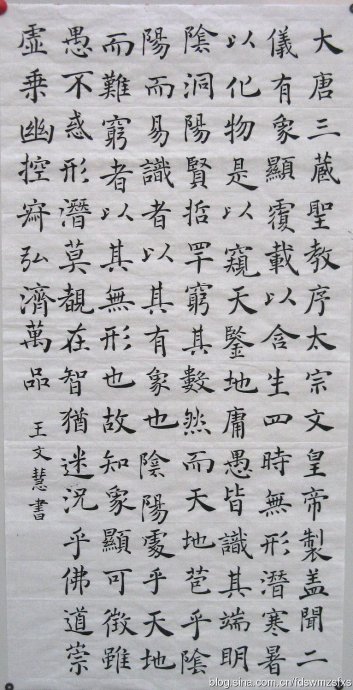 大唐三蔵聖教序太宗文皇帝製盖聞二
儀有象顯覆載以含生四時無形潛寒暑
以化物是以窺天鑒地庸愚皆識其端明
陰洞陽賢哲罕窮其數然而天地苞乎陰
陽而易識者以其有象也陰陽處乎天地
而難窮者以其無形也故知象顯可徵雖
愚不惑形潛莫覩在智猶迷況乎佛道崇
虛乗幽控寂弘濟萬品
王文慧書
blog.sina.com.cn/fdswmzsfxs